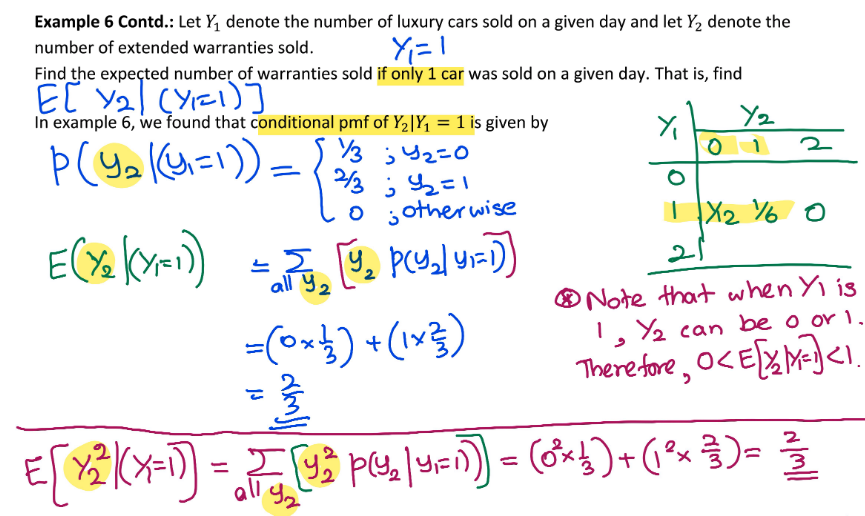 Example 6 Contd.: Let Y₁ denote the number of luxury cars sold on a given day and let Y₂ denote the
number of extended warranties sold.
Y₁=1
Find the expected number of warranties sold if only 1 car was sold on a given day. That is, find
E[ Y₂| (Y₁=1)]
In example 6, we found that conditional pmf of Y₂|Y₁ = 1 is given by
P(y₂|(y₁=1)) = { 1/3 ; y₂=0
2/3 ; y₂=1
0 ; otherwise
Y₁ Y₂
0 1 2
0
1 1/12 1/6 0
2
E(Y₂|(Y₁=1)) = Σ all y₂ [y₂ P(y₂|y₁=1)]
=(0×1/3) + (1×2/3)
= 2/3
⊛ Note that when Y₁ is
1, Y₂ can be 0 or 1.
Therefore, 0<E[Y₂|Y₁=1]<1.
E[Y₂²|(Y=1)] = Σ all y₂ [y₂² P(y₂|y₁=1)] = (0²×1/3)+(1²×2/3)= 2/3